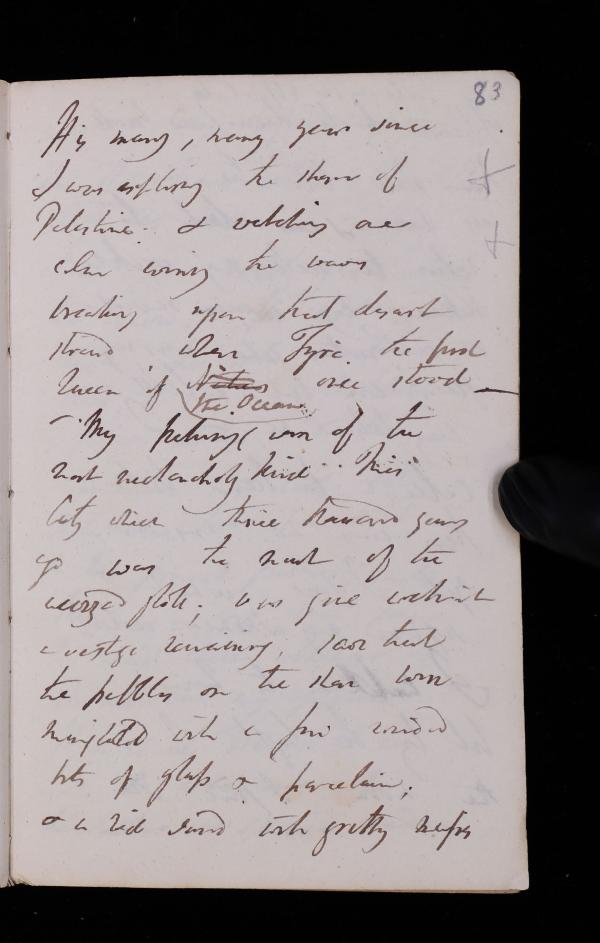 83
many, many years since
I was exploring the shores of
Palestine & watching one
the waves
breaking upon that desart
strand where Tyre the first
Queen of Nations once stood —
the Ocean
My feelings were of the
most melancholy kind. This
City which three thousand years
was the of the
globe; was gone without
a vestige remaining, save that
the pebbles on the shore were
mingled with a few rounded
bits of glass & porcelain;
& a red sand with